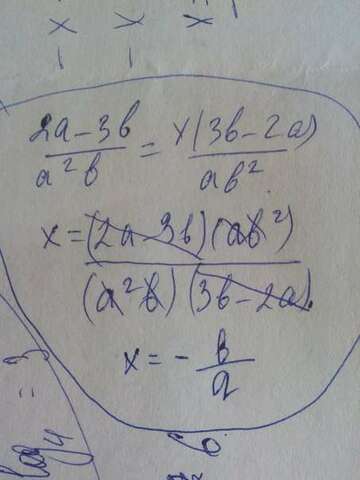 x x x
(2a-3b)/(a²b) = x(3b-2a)/(ab²)
x = (2a-3b)(ab²)/((a²b)(3b-2a))
x = -b/a
log₄ = 3